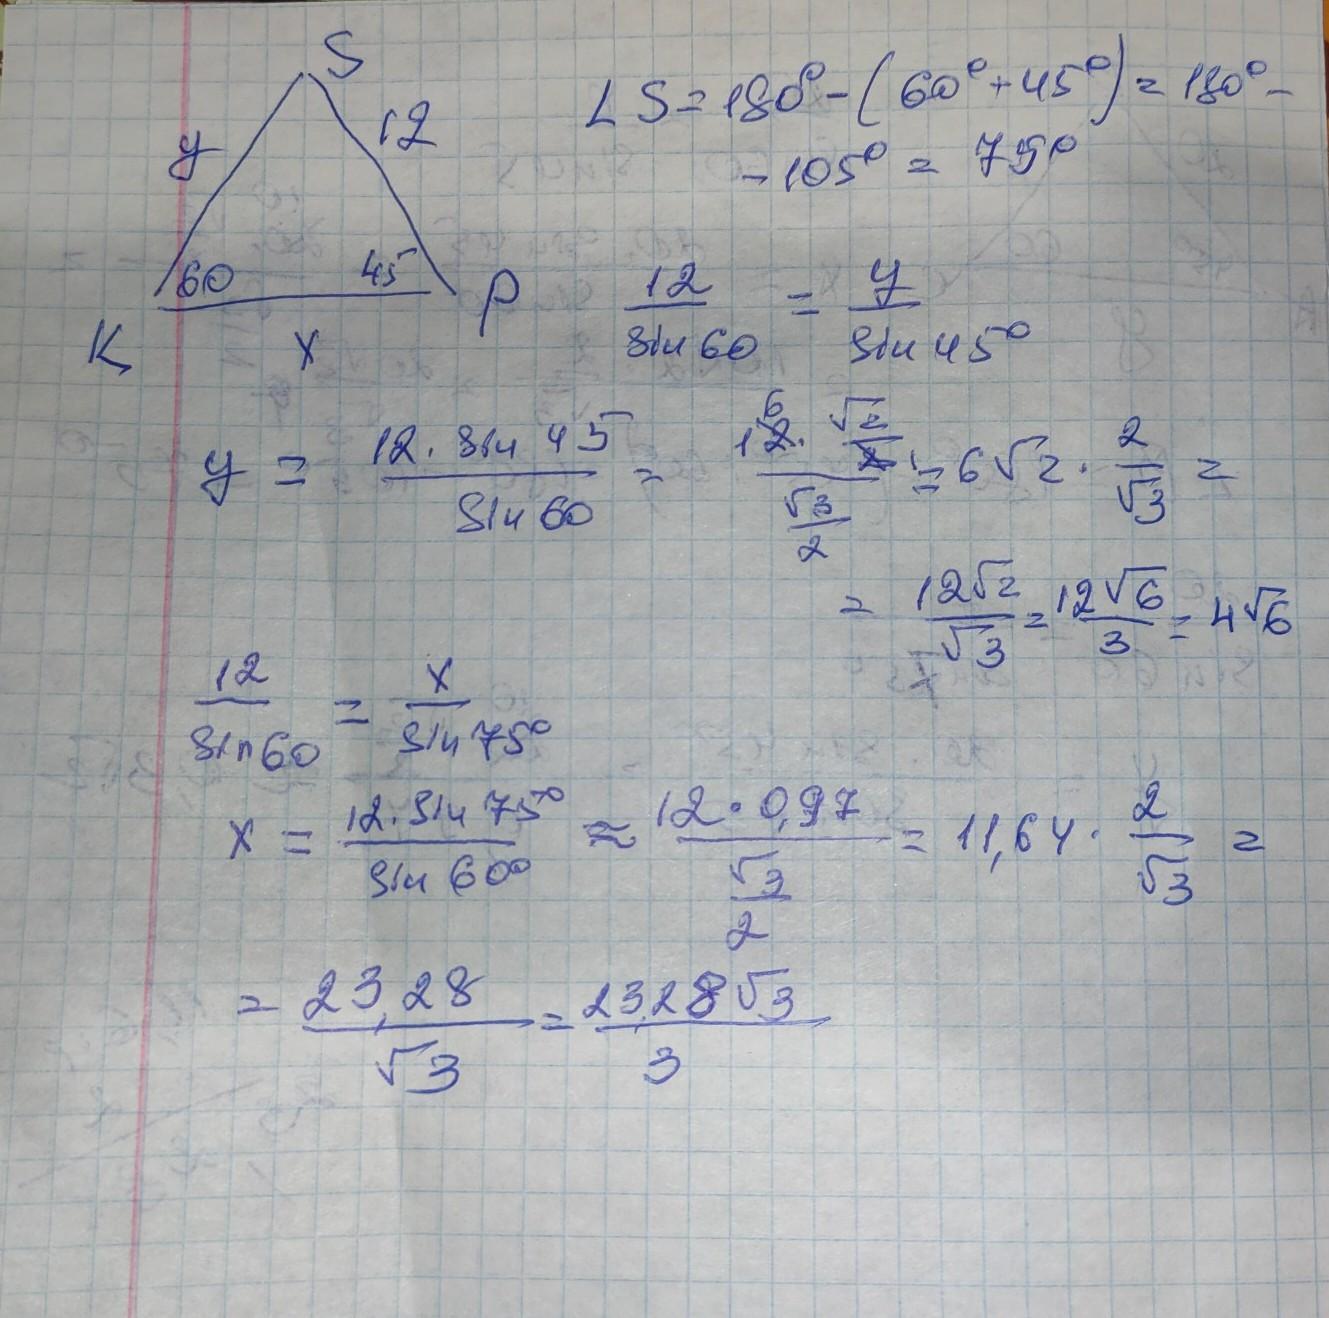 S
y 12
60 45
K x P
∠S = 180° - (60° + 45°) = 180° -
- 105° = 75°
12/sin 60 = y/sin 45°
y = (12 · sin 45)/(sin 60) = (12 6 · √2/2 1)/(√3/2) = 6√2 · 2/√3 =
= 12√2/√3 = 12√6/3 = 4√6
12/sin 60 = x/sin 75°
x = (12 · sin 75°)/(sin 60°) ≈ (12 · 0,97)/(√3/2) = 11,64 · 2/√3 =
= 23,28/√3 = 23,28√3/3